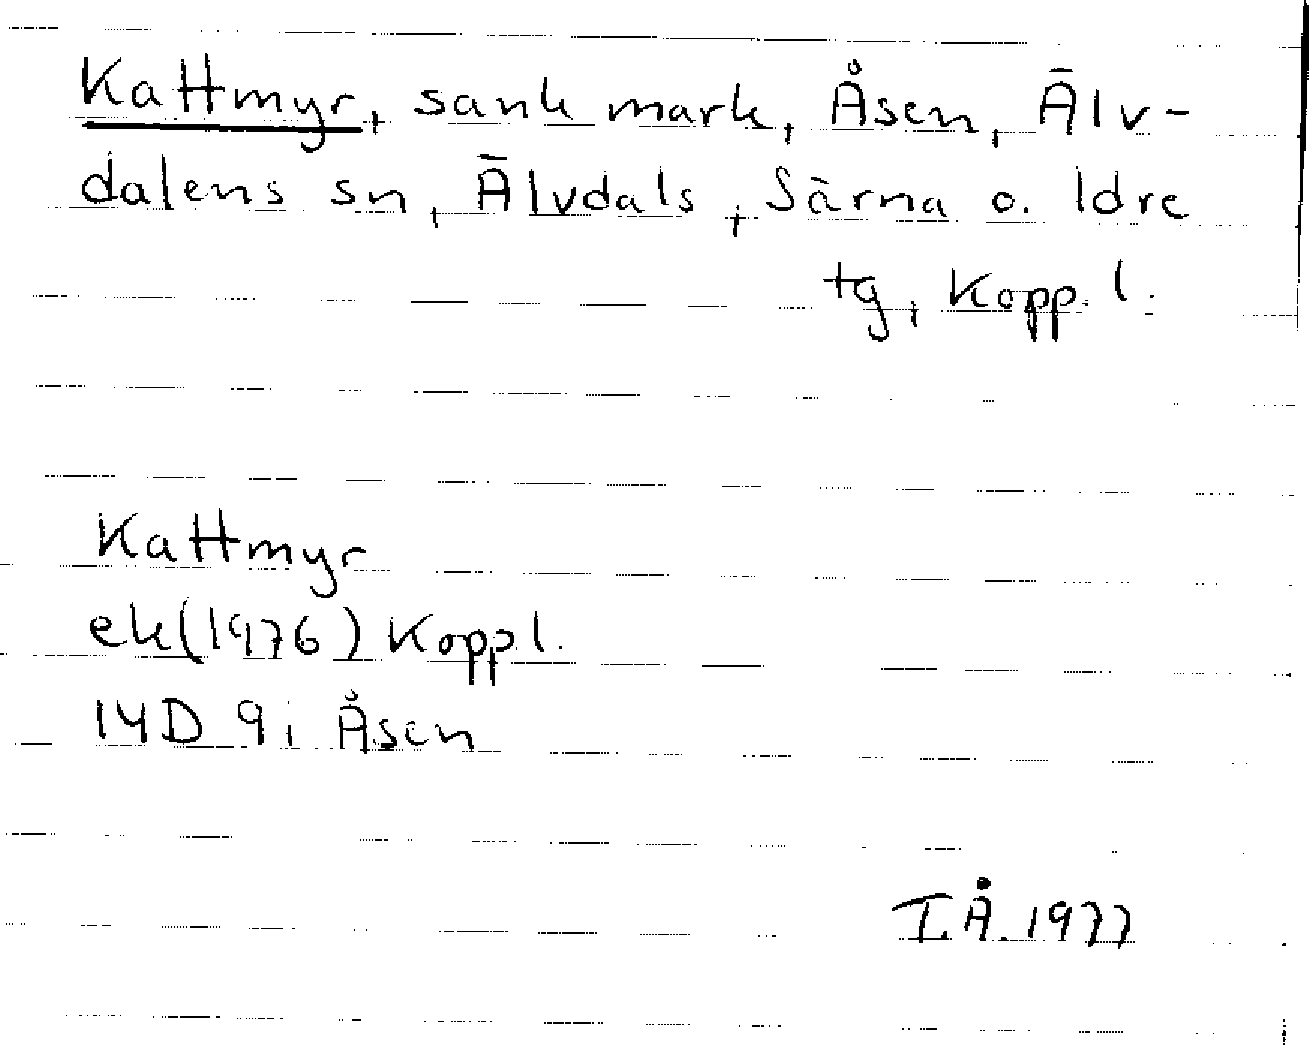 Kattmyr, sank mark, Åsen, Älv-
dalens sn, Älvdals, Särna o. Idre
tg, Kopp. l.
Kattmyr
ek(1976) Koppl.
14D 9i Åsen
I.Å. 1977